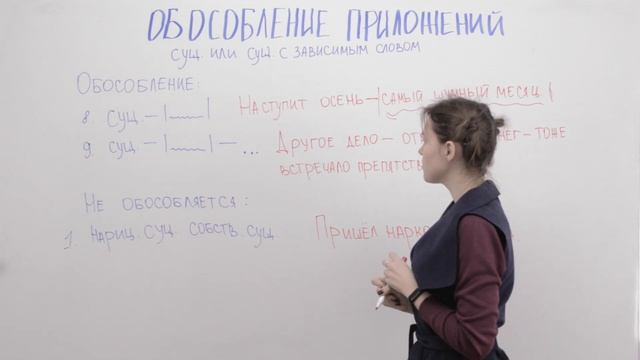 ОБОСОБЛЕНИЕ ПРИЛОЖЕНИЙ
СУЩ. ИЛИ СУЩ. С ЗАВИСИМЫМ СЛОВОМ
ОБОСОБЛЕНИЕ:
8. СУЩ. — | | НАСТУПИТ ОСЕНЬ — | САМЫЙ МЕСЯЦ |
9. СУЩ. — | | — ... ДРУГОЕ ДЕЛО — — ТОЖЕ
ВСТРЕЧАЛО
НЕ ОБОСОБЛЯЕТСЯ:
1. НАРИЦ. СУЩ. СОБСТВ. СУЩ. ПРИШЁЛ